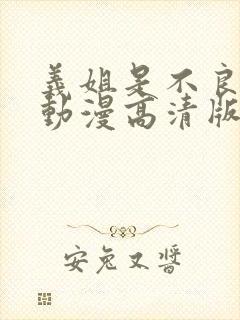 義姐是不良
動漫高清版
安兔又醬